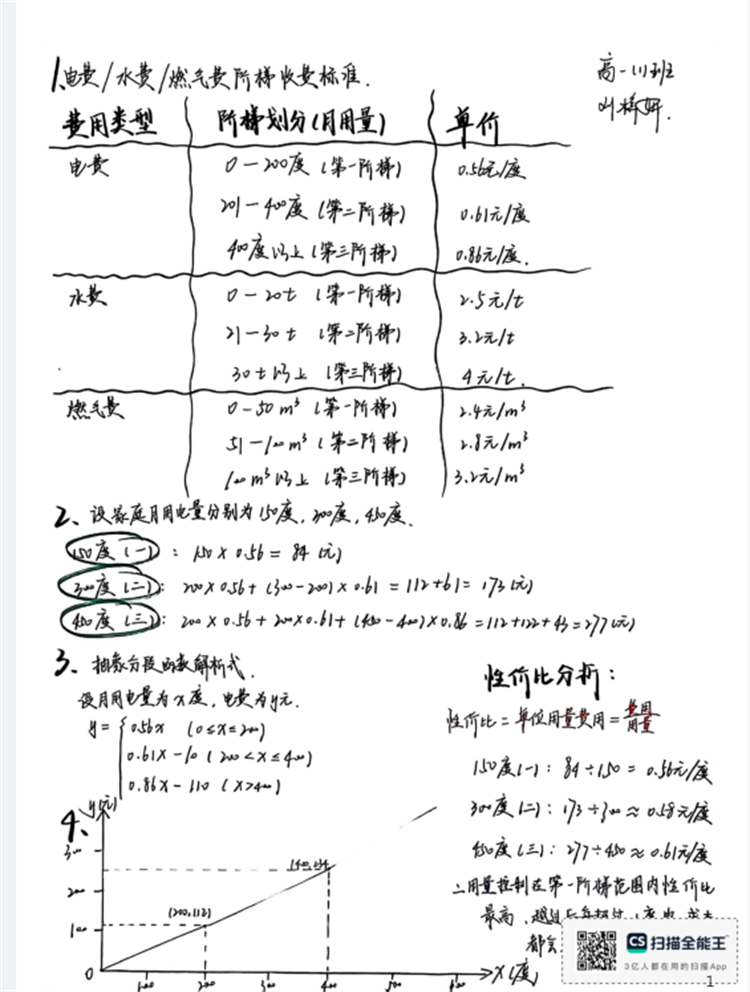 1、电费/水费/燃气费阶梯收费标准.
高一(1)班
费用类型 阶梯划分(月用量) 单价
电费 0-200度 (第一阶梯) 0.56元/度
201-400度 (第二阶梯) 0.61元/度
400度以上 (第三阶梯) 0.86元/度.
水费 0-20t (第一阶梯) 2.5元/t
21-30t (第二阶梯) 3.2元/t
30t以上 (第三阶梯) 4元/t.
燃气费 0-50m³ (第一阶梯) 2.4元/m³
51-100m³ (第二阶梯) 2.8元/m³
100m³以上 (第三阶梯) 3.2元/m³
2、设家庭月用电量分别为150度,300度,450度.
150度(一): 150×0.56=84(元)
300度(二): 200×0.56+(300-200)×0.61=112+61=173(元)
450度(三): 200×0.56+200×0.61+(450-400)×0.86=112+122+43=277(元)
3、抽象分段函数解析式.
设月用电量为x度,电费为y元.
y={0.56x (0≤x≤200)
0.61x-10 (200<x≤400)
0.86x-110 (x>400)
性价比分析:
性价比=单位用量费用=费用/用量
150度(一): 84÷150=0.56元/度
300度(二): 173÷300≈0.58元/度
450度(三): 277÷450≈0.61元/度
∴用量控制在第一阶梯范围内性价比
最高,
都会
4、
y(元)
300
200
100
0
(200,112)
(400,234)
100 200 300 400 500 600
x(度)
CS 扫描全能王
3亿人都在用的扫描App
1